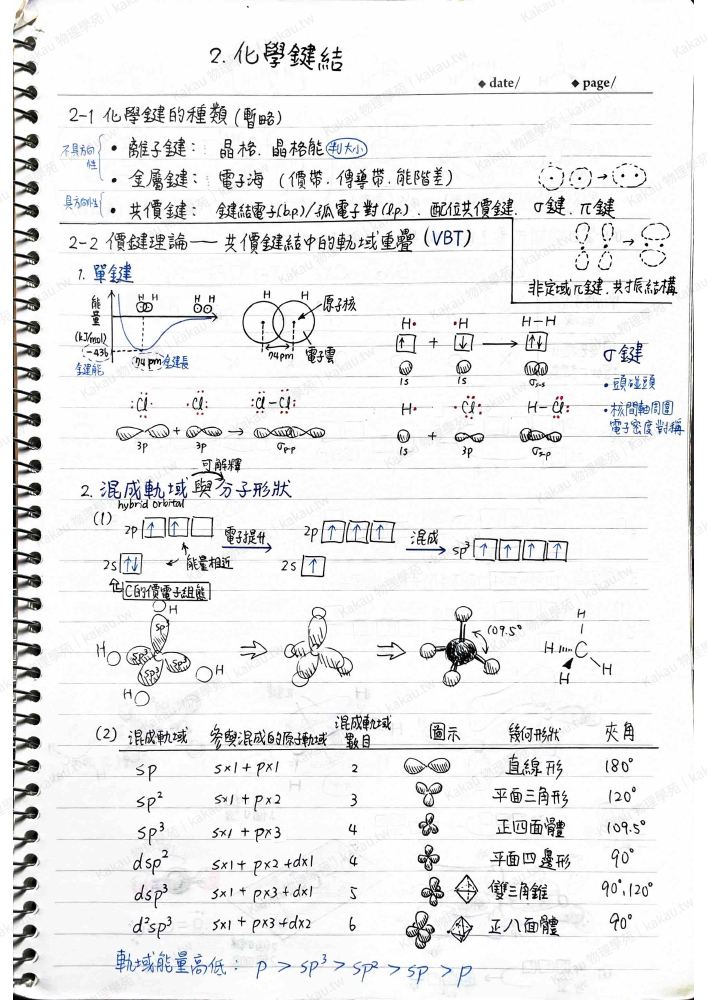 2. 化學鍵結
◆ date/ ◆ page/
2-1 化學鍵的種類 (暫略)
不具方向性
• 離子鍵： 晶格. 晶格能 判大小
• 金屬鍵： 電子海 (價帶. 傳導帶. 能階差)
具方向性
• 共價鍵： 鍵結電子(b.p)/孤電子對(l.p). 配位共價鍵. σ鍵. π鍵
2-2 價鍵理論── 共價鍵結中的軌域重疊 (VBT)
非定域π鍵. 共振結構
1. 單鍵
能量
(kJ/mol)
-436
鍵能
H H H H
74 pm 鍵長
H H
原子核
電子雲
74pm
H• •H H-H
↑ + ↓ → ↑↓
1s 1s σs-s
σ鍵
• 頭碰頭
• 核間軸周圍
電子密度對稱
:Cl· ·Cl: :Cl-Cl:
+ →
3p 3p σp-p
H• ·Cl: H-Cl:
+ →
1s 3p σs-p
可解釋
2. 混成軌域 與 分子形狀
hybrid orbital
(1)
2p ↑ ↑ 電子提升 2p ↑ ↑ ↑ 混成 sp³ ↑ ↑ ↑ ↑
2s ↑↓ 能量相近 2s ↑
C的價電子組態
H
sp³
H sp³ sp³ H
H
109.5°
H
H C
H H
(2) 混成軌域 參與混成的原子軌域 混成軌域數目 圖示 幾何形狀 夾角
sp s×1 + p×1 2 直線形 180°
sp² s×1 + p×2 3 平面三角形 120°
sp³ s×1 + p×3 4 正四面體 109.5°
dsp² s×1 + p×2 + d×1 4 平面四邊形 90°
dsp³ s×1 + p×3 + d×1 5 雙三角錐 90°, 120°
d²sp³ s×1 + p×3 + d×2 6 正八面體 90°
軌域能量高低： p > sp³ > sp² > sp > p
Kakau 物理學苑 | kakau.tw